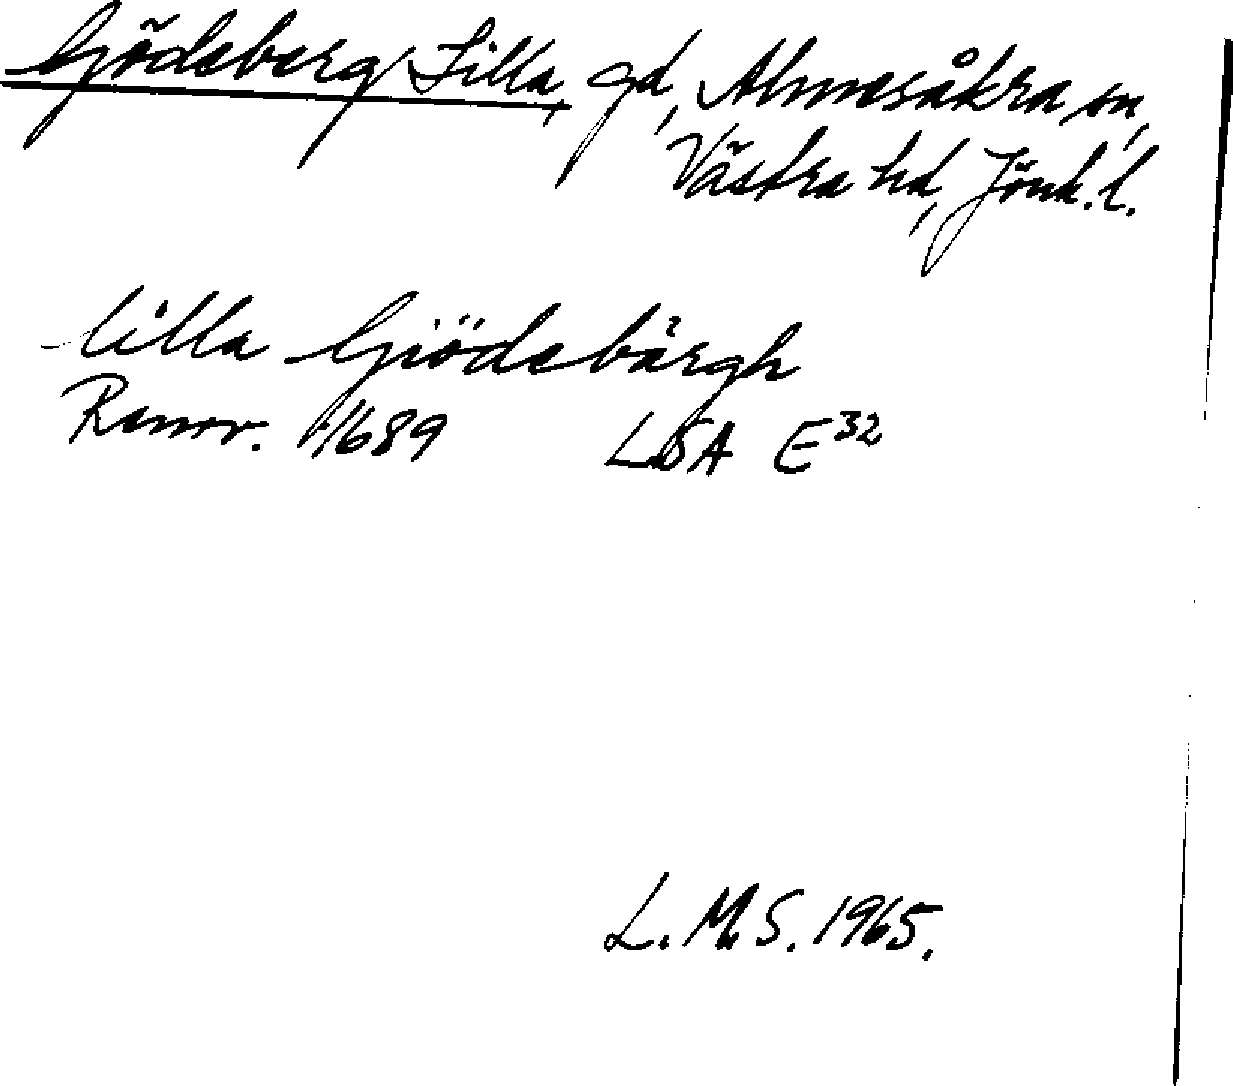 Gödeberg, Lilla, gd, Almesåkra sn,
Västra hd, Jönk. l.
Lilla Giödebärgh
Rannr. 1/1689 LSA E32
L. M. S. 1965.